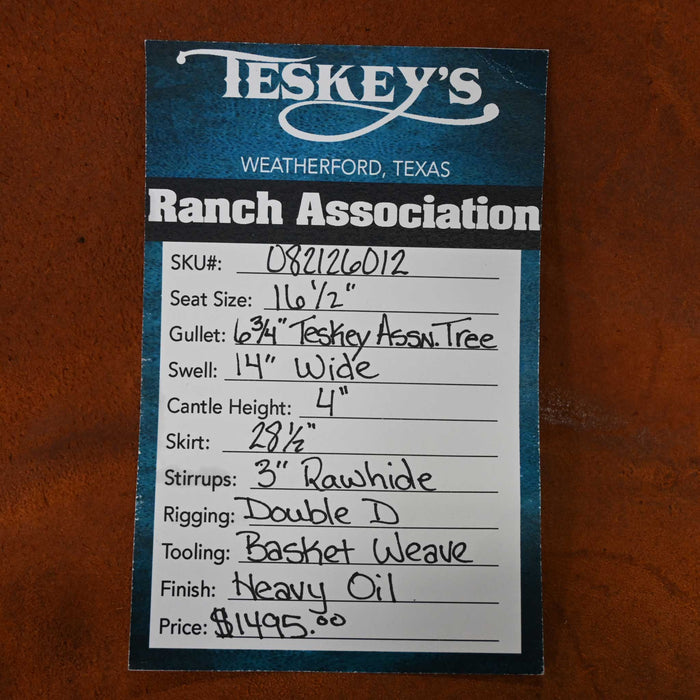 TESKEY'S
WEATHERFORD, TEXAS
Ranch Association
SKU#: 082126012
Seat Size: 16 1/2"
Gullet: 6 3/4" Teskey Assn. Tree
Swell: 14" Wide
Cantle Height: 4"
Skirt: 28 1/2"
Stirrups: 3" Rawhide
Rigging: Double D
Tooling: Basket Weave
Finish: Heavy Oil
Price: $1495.00